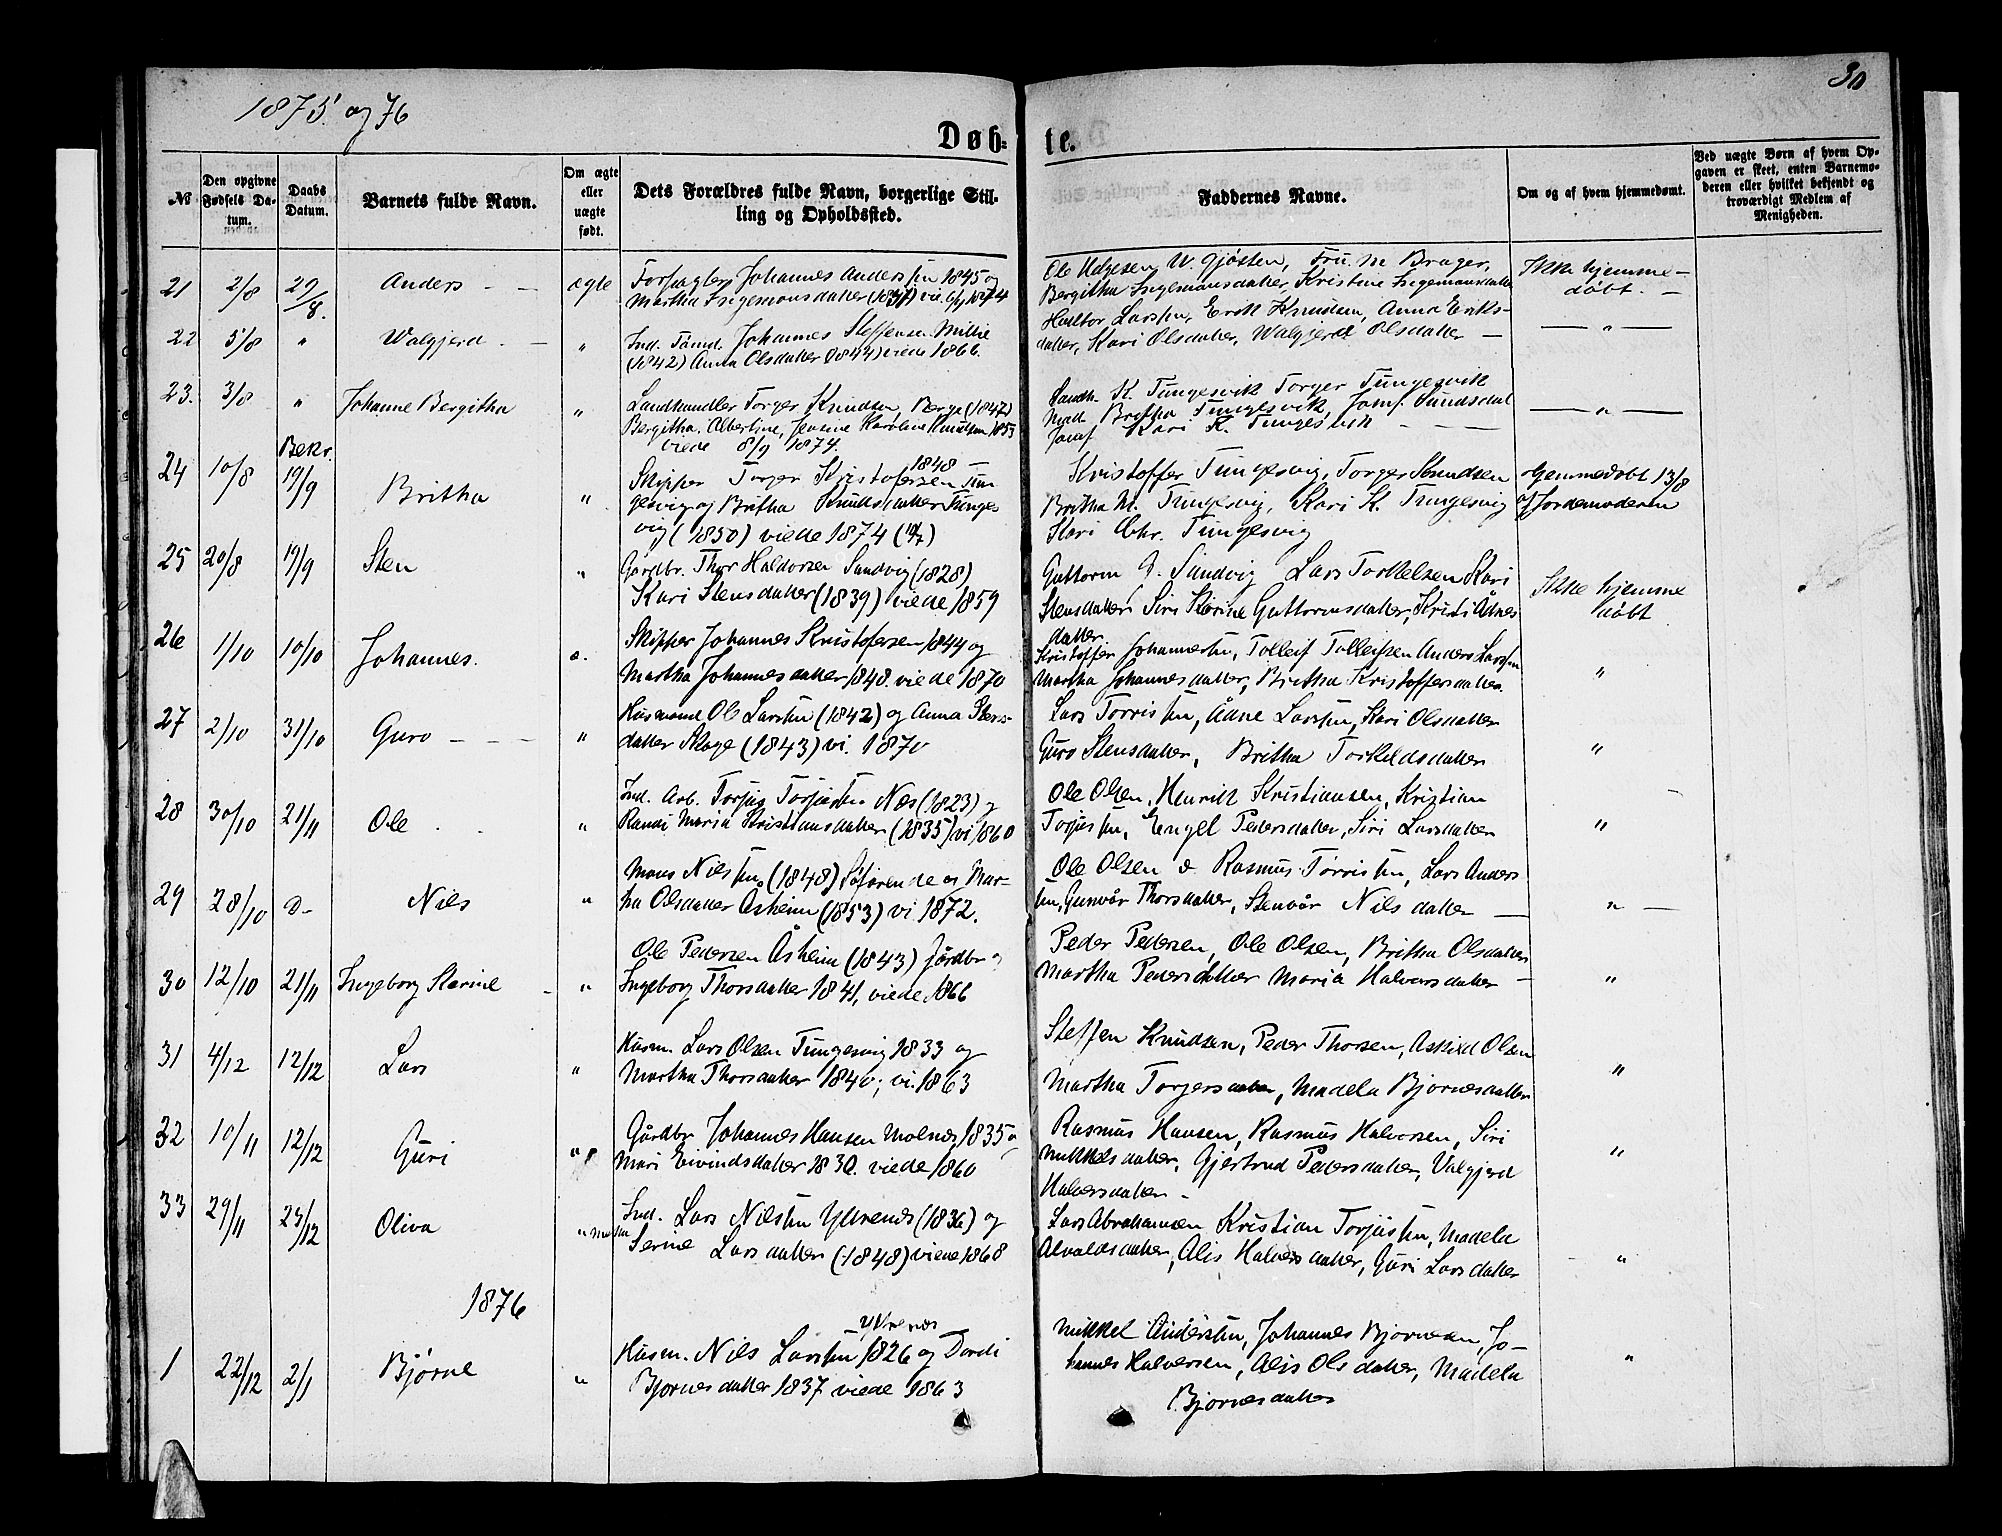 30
1875 og 76
Døb= te.
№
Den opgivne Fødsels Datum.
Daabs Datum.
Barnets fulde Navn.
Om ægte eller uægte født.
Dets Forældres fulde Navn, borgerlige Stilling og Opholdssted.
Faddernes Navne.
Om og af hvem hjemmedømt.
Ved uægte Børn af hvem Opgaven er skeet, enten Barnemoderen eller hvilket bekjendt og troværdigt Medlem af Menigheden.
21 2/8 29/8. Anders ægte
Forpagter Johannes Anderssen 1845 og
Martha Ingemonsdatter (1847) vie. 1874
Ole Helgesen W. Gjøsten, Fru. M Brager,
Bergitha Ingemansdatter, Kristine Ingemansdatter
Ikke hjemme-
døbt. -
22 5/8 " Walgjerd - "
Ind. Tømd. Johannes Steffensen Millie
(1842) Anna Olsdatter (1844) viede 1866.
Larssen, Erik Knudsen, Anna Eriks-
datter, Kari Olsdatter, Walgjerd Olsdatter -
— " —
23. 3/8 " Johanne Bergitha "
Landhandler Torger Knudsen, Berge (1847)
Bergitha, Albertine, Jensine Karoline Knudsen 1853
viede 8/9 1874.
Landh. K. Tungesvik Torger Tungesvik
Mad Britha Tungesvik, Jomf. Sundsdal
Jomf Kari K. Tungesvik
— " —
24 10/8 Bekr. 19/9 Britha "
1848 -
Skipper Torger Kristofersen Tun-
gesvig og Britha Knudsdatter Tunges
vig (1850) viede 1874
Kristoffer Tungesvig, Torger Knudsen
Britha M. Tungesvig, Kari K. Tungesvig
Kari Chr. Tungesvig
Hjemmedøbt 13/8
af Jordemoderen
25 20/8 19/9 Sten "
Gårdbr. Thor Haldorsen Sandvig (1828)
Kari Stensdatter (1839) viede 1859
Guttorm G. Sandvig Lars Torkelsen Kari
Stensdatter Siri Serine Guttormsdatter, Kristi Ådnes
datter
Ikke hjemme
døbt
26 1/10 10/10 Johannes. æ.
Skipper Johannes Kristofersen 1844 og
Martha Johannesdatter 1848. viede 1870
Kristoffer Johannessen, Tolleif Tolleifsen Anders Larssen
Martha Johannesdatter, Britha Kristoffersdatter.
"
27 2/10 31/10 Guro - - - "
Husmand Ole Larssen (1842) og Anna Stens-
datter Skage (1843) vi. 1870
Lars Torrissen, Ådne Larssen, Kari Olsdatter
Guro Stensdatter, Britha Torkildsdatter
"
28 30/10 21/11 Ole "
Ind. Arb. Torjus Torjussen Næs (1823) og
Randi Maria Kristiansdatter (1835) vi 1860
Ole Olsen, Henrik Kristiansen, Kristian
Torjussen, Engel Pedersdatter, Siri Larsdatter
"
29 28/10 D- Nils "
Mons Nilssen (1848) Søfarende og Mar-
tha Olsdatter Åsheim (1853) vi 1872.
Ole Olsen Rasmus Torrissen, Lars Anders
sen, Gunvår Thorsdatter, Stenvår Nilsdatter —
" —
30 12/10 21/11 Ingeborg Serine - "
Ole Pedersen Åsheim (1843) Jordbr og
Ingeborg Thorsdatter 1841, viede 1866
Peder Pedersen, Ole Olsen, Britha Olsdatter
Martha Pedersdatter Maria Halversdatter -
"
31 4/12 12/12 Lars "
Husm. Lars Olsen Tungesvig 1833 og
Martha Thorsdatter 1840; vi. 1863
Steffen Knudsen, Peder Thorsen, Askild Olsen
Martha Torgersdatter, Madela Bjornesdatter
"
32 10/11 12/12 Guri "
Gårdbr Johannes Hansen Molnes 1835 og
Mari Eivindsdatter 1830. viede 1860
Rasmus Hansen, Rasmus Halversen, Siri
Mikkelsdatter, Gjertrud Pedersdatter, Valgjerd
Halversdatter -
"
33 29/11 25/12 Oliva "
Ind. Lars Nilssen Yttrenæs (1836) og
Martha Serine Larsdatter (1848) viede 1868
Lars Abrahamsen Kristian Torjussen, Madela
Alvaldsdatter, Alis Halversdatter, Guri Larsdatter
"
1876
1 22/12 2/1 Bjørne "
Yttrenæs
Husm. Nils Larssen 1826 og Dordi
Bjornesdatter 1837 viede 1863
Mikkel Anderssen, Johannes Bjornesen, Jo-
hannes Halversen, Alis Olsdatter, Madela
Bjornesdatter
"